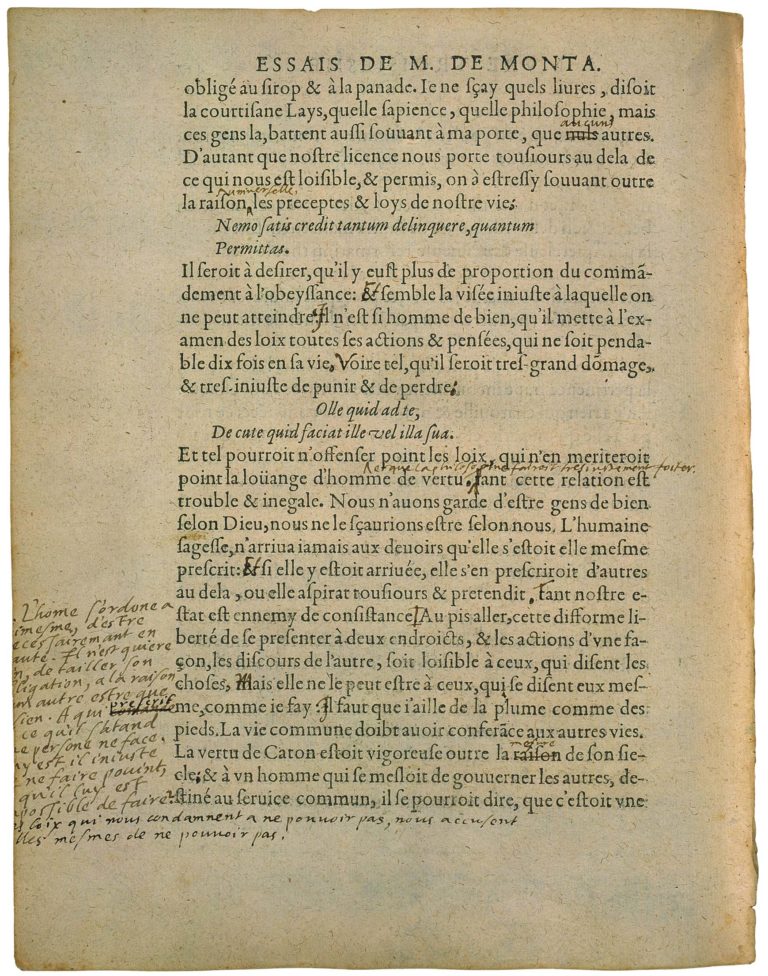 ESSAIS DE M. DE MONTA.
obligé au sirop & à la panade. Ie ne sçay quels liures, disoit
la courtisane Lays, quelle sapience, quelle philosophie, mais
aucuns
ces gens la, battent aussi souuant à ma porte, que nuls autres.
D'autant que nostre licence nous porte tousiours au dela de
ce qui nous est loisible, & permis, on à estressy souuant outre
universelle,
la raison, les preceptes & loys de nostre vie.
Nemo satis credit tantum delinquere, quantum
Permittas.
Il seroit à desirer, qu'il y eust plus de proportion du commã-
dement à l'obeyssance: Et semble la visée iniuste à laquelle on
ne peut atteindre. Il n'est si homme de bien, qu'il mette à l'ex-
amen des loix toutes ses actions & pensées, qui ne soit penda-
ble dix fois en sa vie. Voire tel, qu'il seroit tres-grand dõmage,
& tres-iniuste de punir & de perdre:
Olle quid ad te,
De cute quid faciat ille vel illa sua.
Et tel pourroit n'offenser point les loix, qui n'en meriteroit
et que la philosophie fairoit tresjustement foiter.
point la loüange d'homme de vertu. tant cette relation est
trouble & inegale. Nous n'auons garde d'estre gens de bien
selon Dieu, nous ne le sçaurions estre selon nous. L'humaine
sagesse, n'arriua iamais aux deuoirs qu'elle s'estoit elle mesme
prescrit: Et si elle y estoit arriuée, elle s'en prescriroit d'autres
au dela, ou elle aspirat tousiours & pretendit. tant nostre e-
stat est ennemy de consistance. Au pis aller, cette difforme li-
berté de se presenter à deux endroicts, & les actions d'vne fa-
çon, les discours de l'autre, soit loisible à ceux, qui disent les
choses. Mais elle ne le peut estre à ceux, qui se disent eux mes-
me, comme ie fay: Il faut que i'aille de la plume comme des
pieds. La vie commune doibt auoir conferãce aux autres vies.
La vertu de Caton estoit vigoreuse outre la raison de son sie-
mesure
cle: & à vn homme qui se mesloit de gouuerner les autres, de-
stiné au seruice commun, il se pourroit dire, que c'estoit vne
L'home s'ordone a
mesme, d'estre
necessairemant en
faute. Il n'est guiere
fin, de tailler son
obligation, a la raison
d'un autre estre que
sien. A qui prescrit
ce qu'il s'atand
que persone ne face.
luy est il iniuste
de ne faire pouint,
qu'il luy est
impossible de faire.
les loix qui nous condamnent a ne pouvoir pas, nous accusent
elles mesmes de ne pouvoir pas.